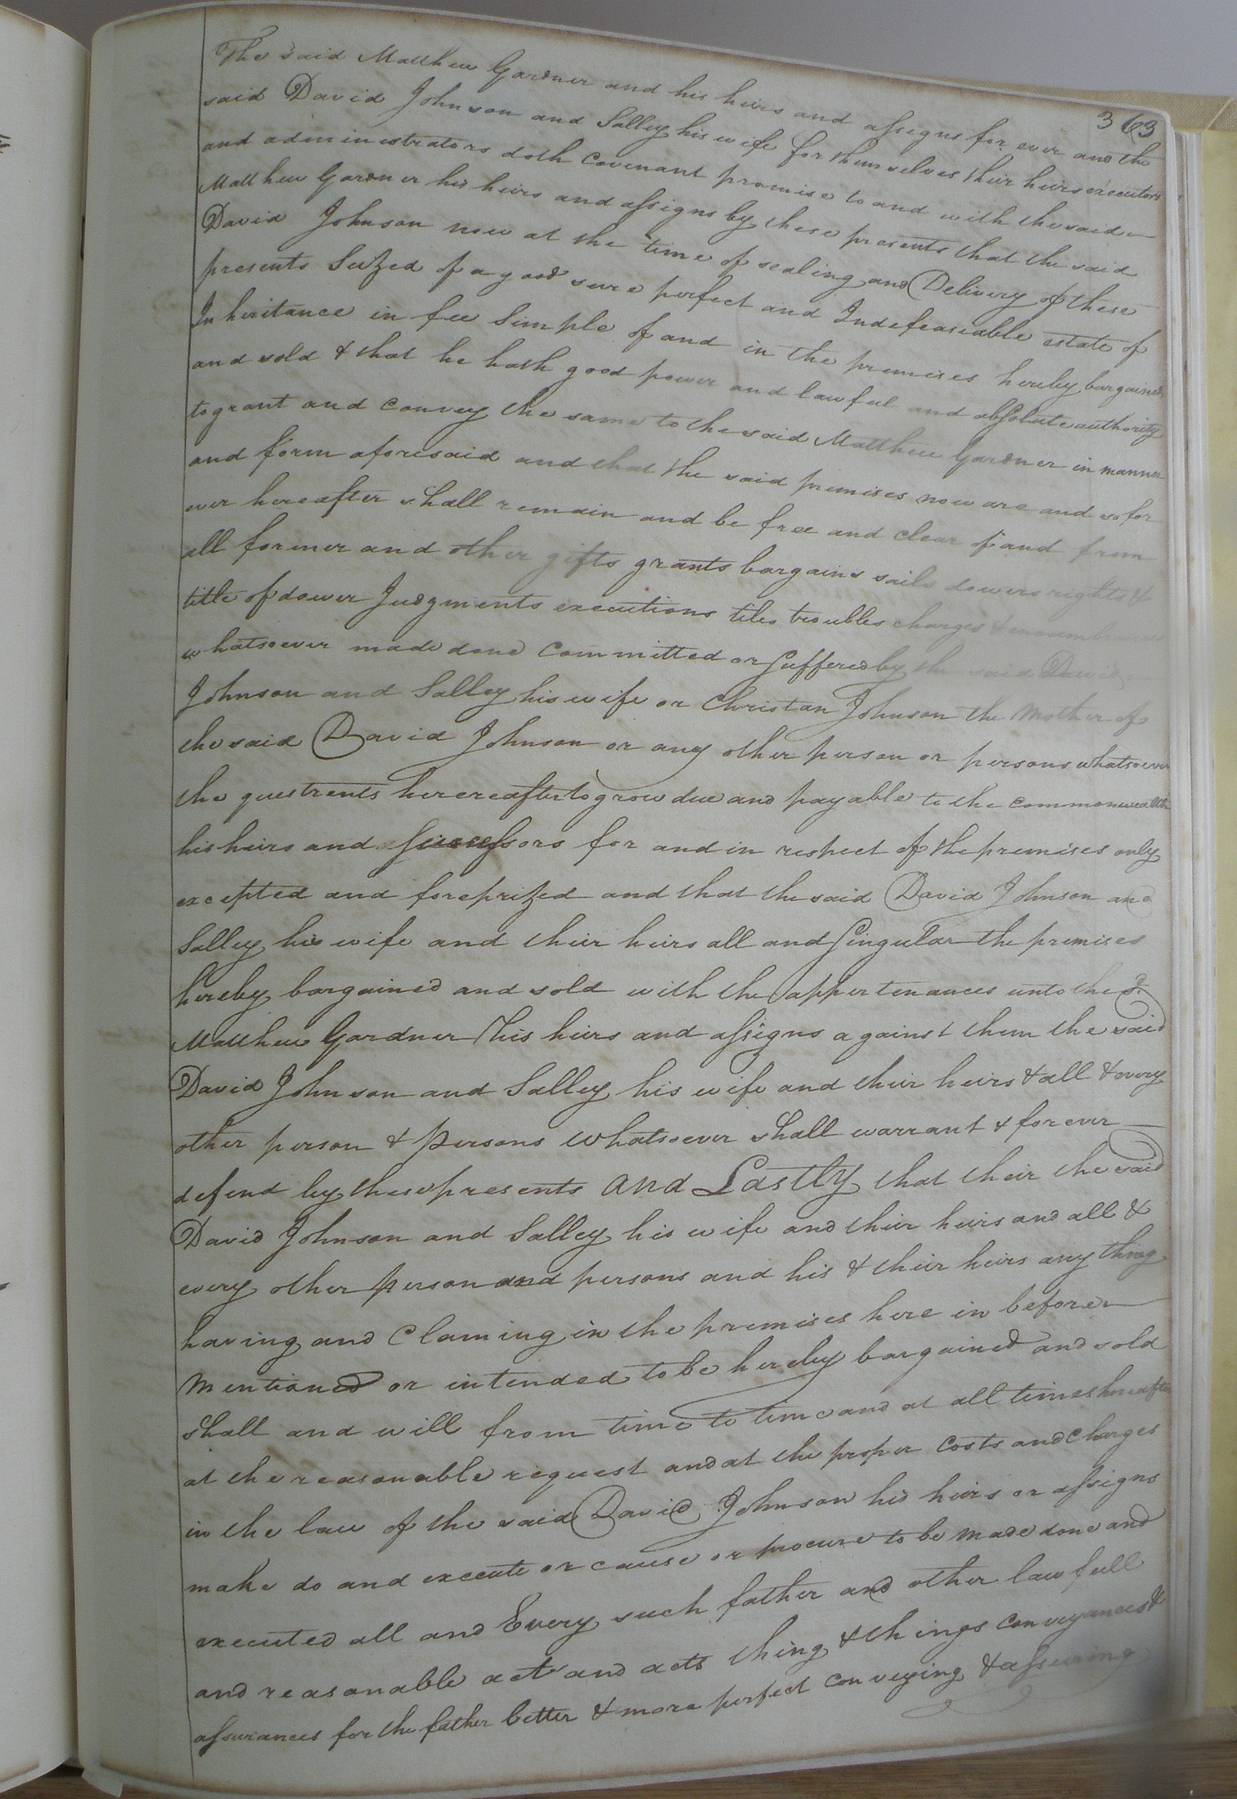 363
The said Matthew Gardner and his heirs and assigns for ever and the
said David Johnson and Salley his wife for themselves their heirs executors
and administrators doth covenant promise to and with the said
Matthew Gardner his heirs and assigns by these presents that the said
David Johnson now at the time of sealing and Delivery of these
presents Seized of a good sure perfect and Indefeasiable estate of
Inheritance in fee Simple of and in the premises hereby bargained
and sold & that he hath good power and lawful and absolute authority
to grant and convey the same to the said Matthew Gardner in manner
and form aforesaid and that the said premises now are and so for
ever hereafter shall remain and be free and clear of and from
all former and other gifts grants bargains sails dowers rights &
title of dower Judgments executions titles troubles charges &
whatsoever made done Committed or Suffered by the said David
Johnson and Salley his wife or Christan Johnson the Mother of
the said David Johnson or any other person or persons whatsoever
the questrents herereafter to grow due and payable to the commonwealth
his heirs and Successors for and in respect of the premises only
excepted and foreprized and that the said David Johnson and
Salley his wife and their heirs all and Singular the premises
hereby bargained and sold with the appertenances unto the sd
Matthew Gardner his heirs and assigns against them the said
David Johnson and Salley his wife and their heirs & all & every
other person & persons whatsoever shall warrant & forever
defend by these presents and Lastly that their the said
David Johnson and Salley his wife and their heirs and all &
every other person and persons and his & their heirs any thing
having and Claming in the premises here in before
Mentioned or intended to be hereby bargained and sold
Shall and will from time to time and at all times hereafter
at the reasonable request and at the proper costs and Charges
in the law of the said David Johnson his heirs or assigns
make do and execute or cause or procure to be made done and
executed all and Every such father and other lawfull
and reasonable act and acts thing & things conveyances &
assurances for the father better & more perfect conveying & assureing